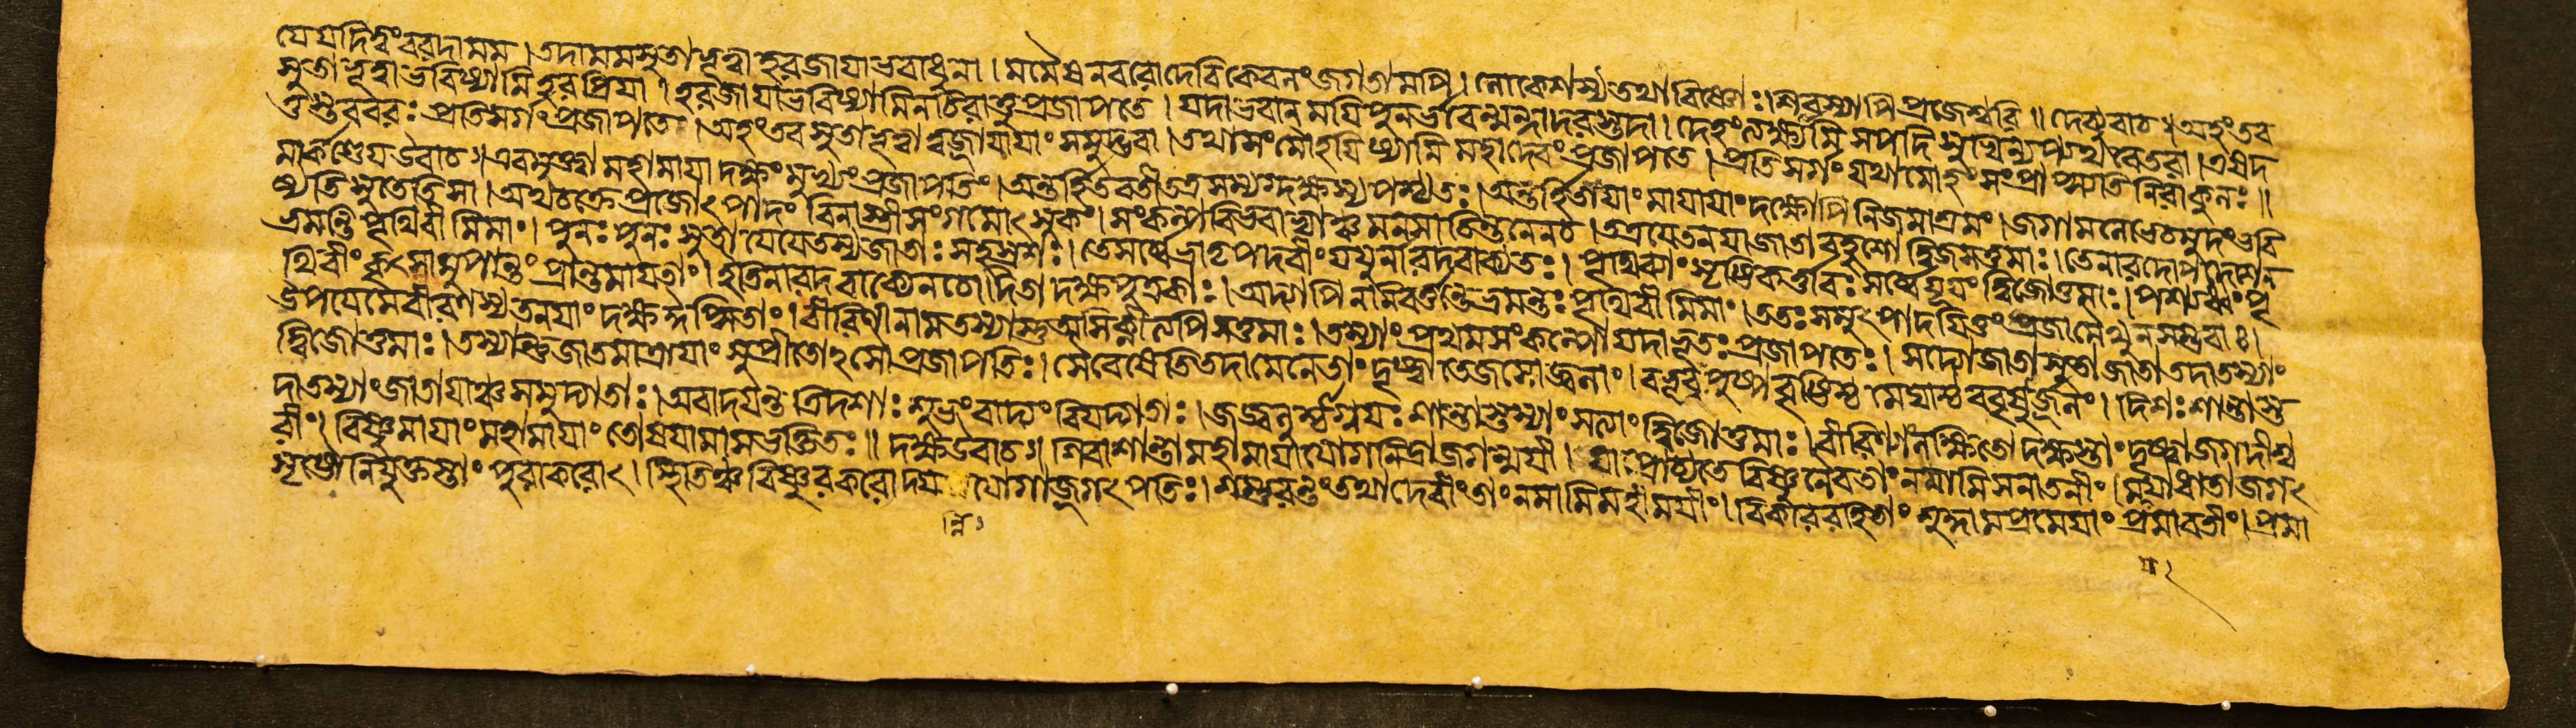 যে যদি ত্বং বরদা মম । তদা মম সুতা ভূত্বা হরজায়া ভবাধুনা । মমৈষ ন বরো দেবি কেবলং জগতামপি । লোকেশস্য তথা বিষ্ণোঃ । শিবস্যাপি প্রজেশ্বরি ॥ দেব্যুবাচ । অহং তব
সুতা ভূত্বা ভবিষ্যামি হরপ্রিয়া । হরজায়া ভবিষ্যামি নচিরাত্তু প্রজাপতে । যদা ভবান্ ময়ি পুনর্ভবেন্মন্দাদরস্তদা । দেহং ত্যক্ষ্যামি সপদি সুখিন্যপ্যথবেতরা । এষ দ
ত্তস্তব বরঃ প্রতিসর্গং প্রজাপতে । অহং তব সুতা ভূত্বা হরজায়া সমুদ্ভবা । তথা সংমোহয়িষ্যামি মহাদেবং প্রজাপতে । প্রতিসর্গং যথা মোহং সংপ্রাপ্স্যতি নিরাকুলঃ ॥
মার্কণ্ডেয় উবাচ । এবমুক্ত্বা মহামায়া দক্ষং মুখ্যং প্রজাপতিং । অন্তর্হিতবতী তত্র সম্যগ্দক্ষস্য পশ্যতঃ । অন্তর্হিতায়াং মায়ায়াং দক্ষোপি নিজমাশ্রমং । জগাম লেভে চ মুদং ভবি
ষ্যতি সুতেতি সা । অথ চক্রে প্রজোৎপাদং বিনা স্ত্রীসংগমোৎসুকং । সংকল্পাবির্ভবাভ্যাঞ্চ মনসা চিন্তনেন চ । তত্র যে তনয়া জাতা বহুশো দ্বিজসত্তমাঃ । তে নারদোপদেশেন
ভ্রমন্তি পৃথিবীমিমাং । পুনঃ পুনঃ সুতা যে যে তস্য জাতাঃ সহস্রশঃ । তে সর্ব্বে ভ্রাতৃপদবীং যযুর্নারদবাক্যতঃ । পৃথিব্যাং সৃষ্টিকর্ত্তারঃ সর্ব্বে যূয়ং দ্বিজোত্তমাঃ । পশ্যধ্বং পৃ
থিবীং কৃৎস্নামুপান্তং প্রান্তমায়তাং । ইতি নারদবাক্যেন চোদিতা দক্ষপুত্রকাঃ । অদ্যাপি ন নিবর্ত্তন্তে ভ্রমন্তঃ পৃথিবীমিমাং । ততঃ সমুৎপাদয়িতুং প্রজা মৈথুনসম্ভবাঃ ।
উপযেমে বীরণস্য তনয়াং দক্ষ ঈপ্সিতাং । বীরিণী নাম তস্যাস্তু অসিক্নীত্যপি সত্তমাঃ । তস্যাং প্রথমসংকল্পো যদা ভূতঃ প্রজাপতেঃ । সদ্যোজাতা সুতা জাতা তদা তস্যাং
দ্বিজোত্তমাঃ । তস্যান্তু জাতমাত্রায়াং সুপ্রীতোঽসৌ প্রজাপতিঃ । সৈবেষেতি তদা মেনে তাং দৃষ্ট্বা তেজসোজ্জ্বলাং । বভূব পুষ্পবৃষ্টিশ্চ মেঘাশ্চ ববৃষুর্জলং । দিশঃ শান্তাস্ত
দা তস্যাং জাতায়াঞ্চ সমুদ্গতাঃ । অবাদয়ন্ত ত্রিদশাঃ শুভং বাদ্যং বিয়দ্গতাঃ । জজ্বলুশ্চাগ্নয়ঃ শান্তাস্তস্যাং সত্যাং দ্বিজোত্তমাঃ । বীরিণ্যালক্ষিতো দক্ষস্তাং দৃষ্ট্বা জগদীশ্ব
রীং । বিষ্ণুমায়াং মহামায়াং তোষয়ামাস ভক্তিতঃ ॥ দক্ষ উবাচ । শিবা শান্তা মহামায়া যোগনিদ্রা জগন্ময়ী । যা প্রোচ্যতে বিষ্ণুমায়া তাং নমামি সনাতনীং । যয়া ধাতা জগৎ
সৃষ্টৌ নিযুক্তস্তাং পুরাকরোৎ । স্থিতিঞ্চ বিষ্ণুরকরোদ্য যোগাজ্জগৎপতিঃ । শম্ভুরন্তং তথা দেবীং তাং নমামি মহীয়সীং । বিকাররহিতাং শুদ্ধামপ্রমেয়াং প্রভাবতীং । প্রমা